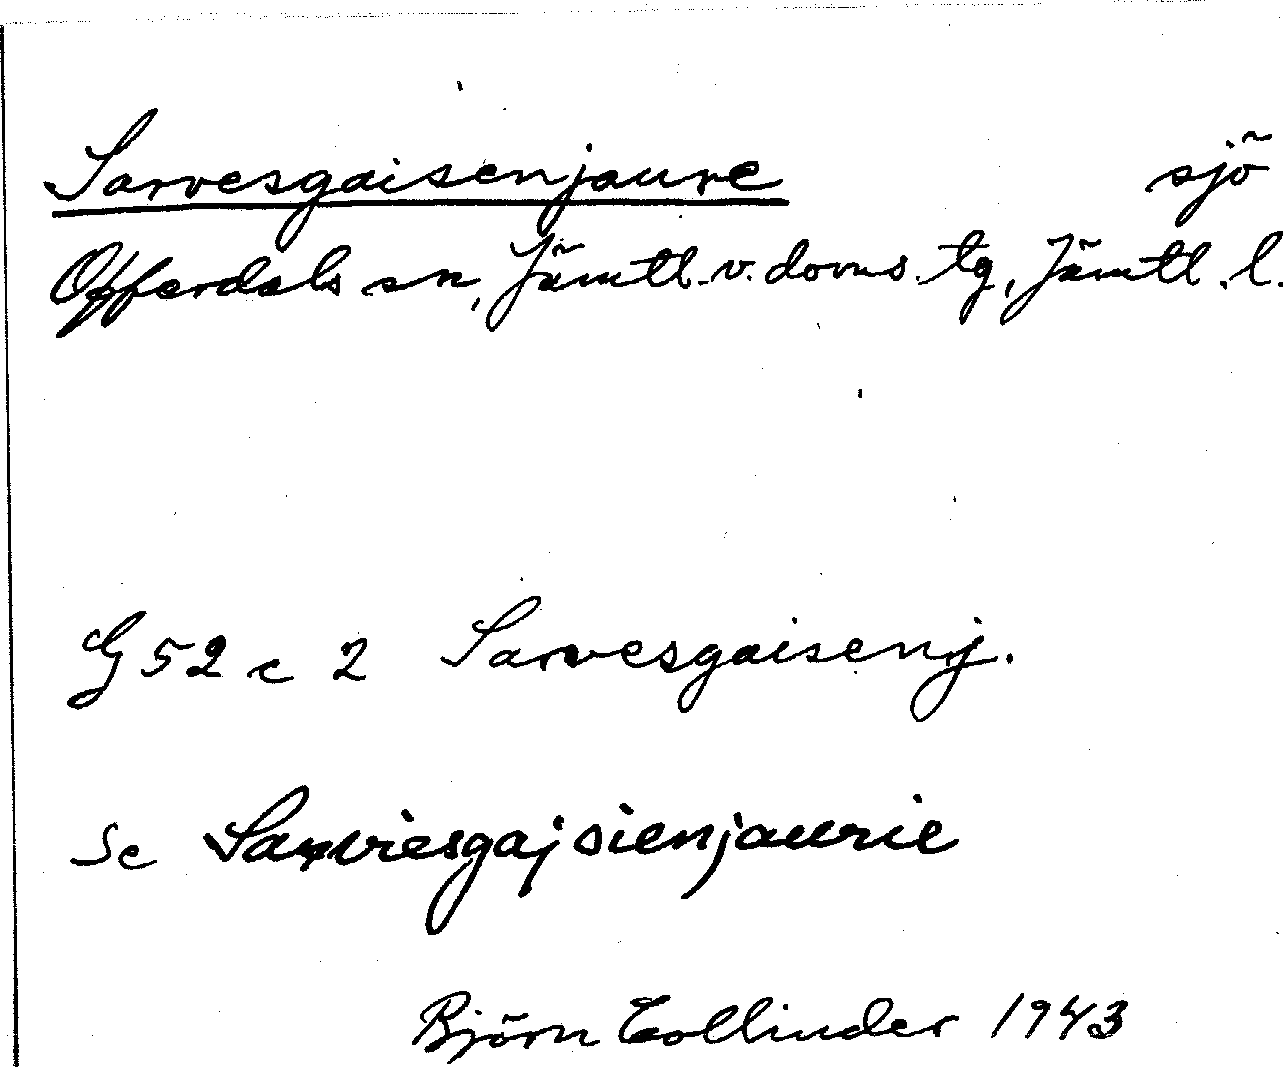 Sarvesgaisenjaure sjö
Offerdals sn, Jämtl. v. doms. tg, Jämtl. l.
G 52 c 2 Sarvesgaisenj.
Se Sarviesgajsienjaurie
Björn Collinder 1943